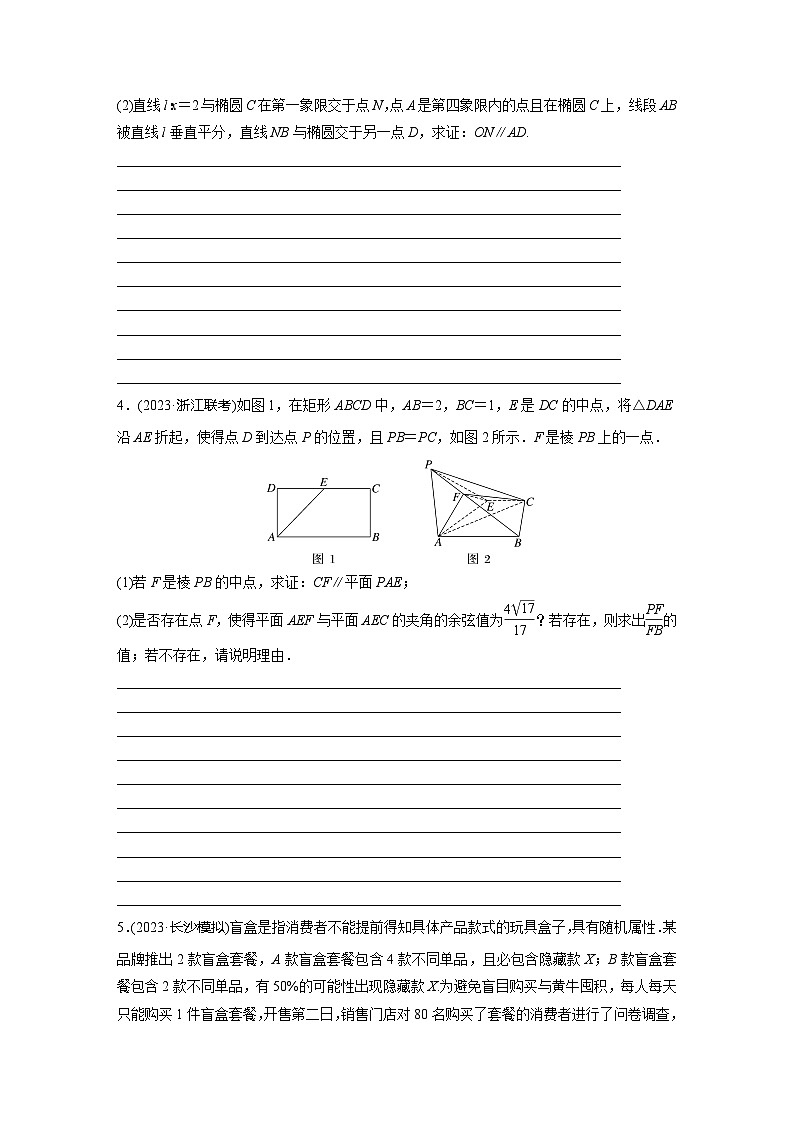 (2)直线 l x＝2 与椭圆 C 在第一象限交于点 N,点 A 是第四象限内的点且在椭圆 C 上，线段 AB
被直线 l 垂直平分，直线 NB 与椭圆交于另一点 D，求证：ON∥AD.
4．(2023·浙江联考)如图 1，在矩形 ABCD 中，AB＝2，BC＝1，E 是 DC 的中点，将△DAE
沿 AE 折起，使得点 D 到达点 P 的位置，且 PB＝PC，如图 2 所示．F 是棱 PB 上的一点．
D E C
A B
图 1
P
F E C
A B
图 2
(1)若 F 是棱 PB 的中点，求证：CF∥平面 PAE；
(2)是否存在点 F，使得平面 AEF 与平面 AEC 的夹角的余弦值为4√17/17？若存在，则求出PF/FB的
值；若不存在，请说明理由．
5.(2023·长沙模拟)盲盒是指消费者不能提前得知具体产品款式的玩具盒子,具有随机属性.某
品牌推出 2 款盲盒套餐，A 款盲盒套餐包含 4 款不同单品，且必包含隐藏款 X；B 款盲盒套
餐包含 2 款不同单品，有 50%的可能性出现隐藏款 X 为避免盲目购买与黄牛囤积，每人每天
只能购买 1 件盲盒套餐,开售第二日,销售门店对 80 名购买了套餐的消费者进行了问卷调查，